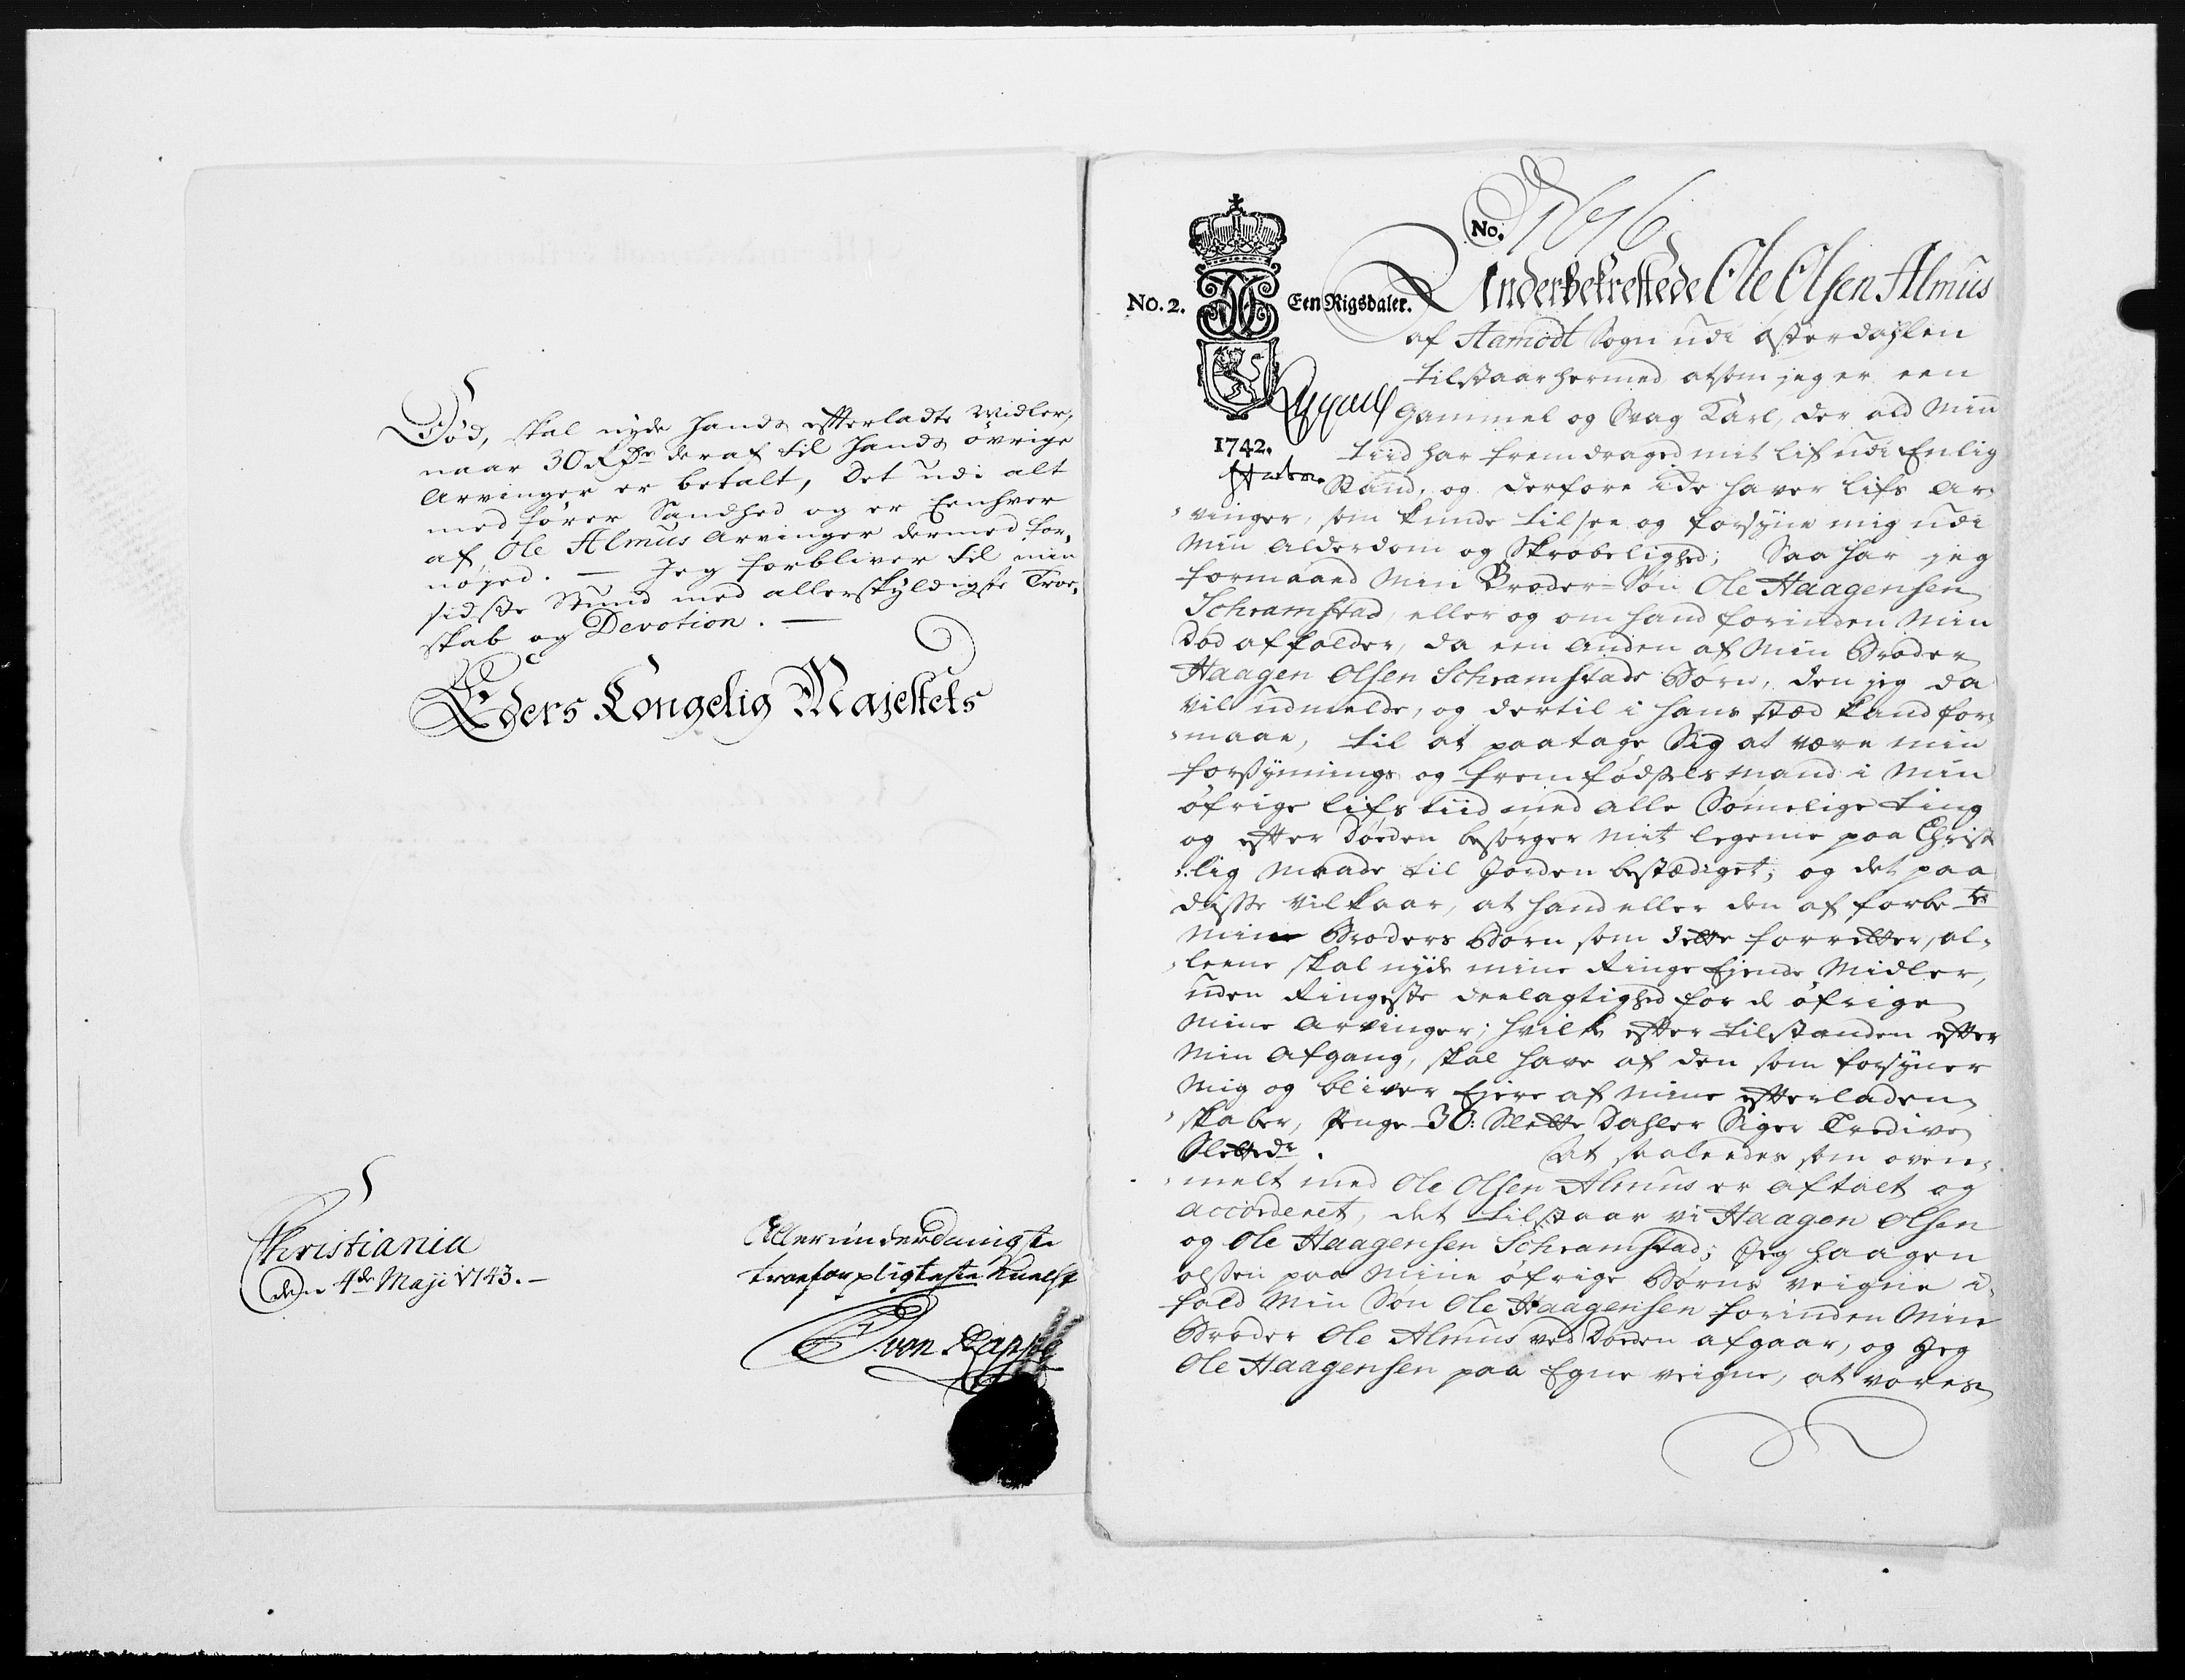 Død, skal nyde hands efterladte Midler,
naar 30 Rdr deraf til hands øvrige
Arvinger er betalt, Det udi alt
medfører Sandhed og er Eenhver
af Ole Almus Arvinger dermed for,
nøyed. — Jeg forbliver til min
sidste Stund med allerskyldigste Troe,
skab og Devotion. —
Eders Kongelig Majestets
Christiania
den 4de Maji 1743. —
Allerunderdanigste
troepligtigste Knecht
von Rappe
No. 1676
No. 2. Een Rigsdaler.
1742.
Underbekreftede Ole Olsen Almus
af Aamodt Sogn udi Østerdahlen
tilstaar hermed at som jeg er een
Gammel og Svag Karl, der ald Min
tiid har fremdraged mit lif udi Enlig
Stand, og derfore icke haver lifs Ar-
vinger, som kunde tilsee og forsyne mig udi
Min Alderdom og Skrøbelighed; Saa har jeg
formaaed Min Broder-Søn Ole Haagensen
Schramstad, eller og om hand forinden Min
Død affalder, da een anden af Min Broder
Haagen Olsen Schramstads Børn, den jeg da
vil udmelde, og dertil i hans stæd kand for,
maae, til at paatage Sig at være min
forsynings og fremfødsels mand i Min
øfrige lifs tiid med alle Sømmelige ting
og efter Døden besørger Mit legeme paa Christ
lig Maade til Jorden bestædiget; og det paa
disse Vilkaar, at hand eller den af forbete
Min Broders Børn som dette forretter, al-
leene skal nyde mine Ringe Ejende Midler,
uden Ringeste deelagtighed for de øfrige
Mine Arvinger; hvilke efter tilstanden efter
Min Afgang, skal have af den som forsyner
Mig og bliver Ejere af Mine efterladen-
skaber, Penge 30: Slette Daler Siger Tredive
Slettedr. At saaledes som oven,
melt med Ole Olsen Almus er aftalt og
accorderet, det tilstaar vi Haagen Olsen
og Ole Haagensen Schramstad; Jeg Haagen
Olsen paa Mine øfrige Børns veigne i-
fald Min Søn Ole Haagensen forinden Min
Broder Ole Almus ved Døden afgaar, og Jeg
Ole Haagensen paa Egne veigne, at vores